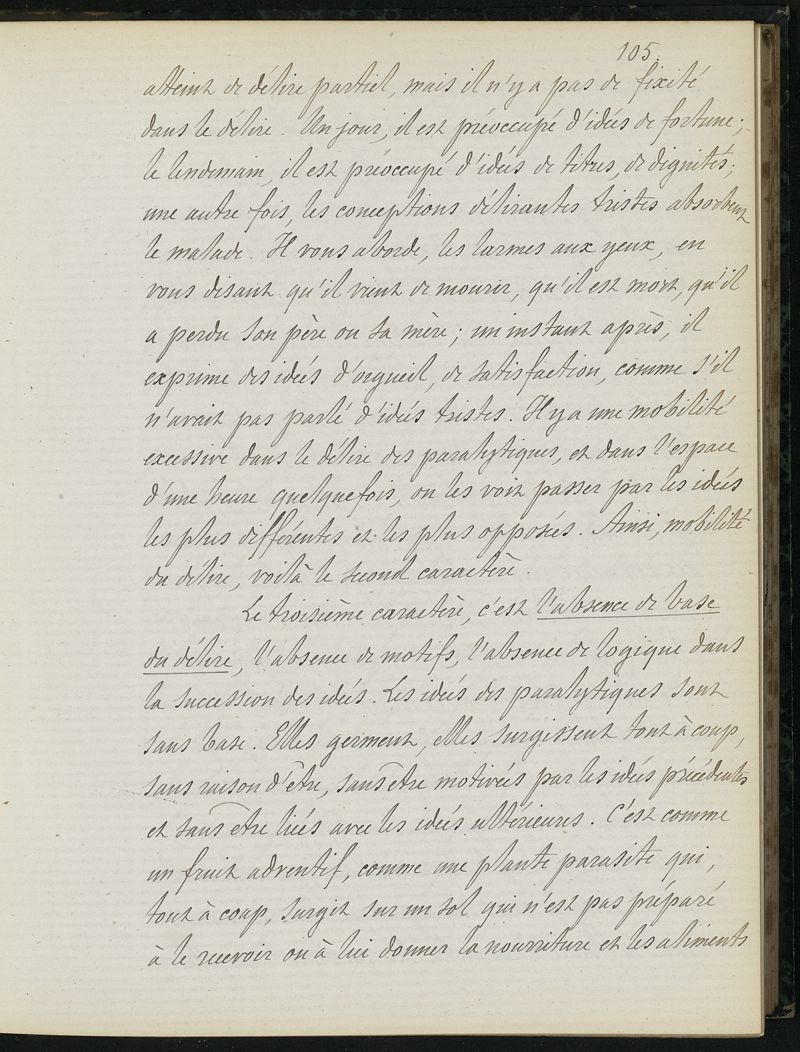 105.
atteint de délire partiel, mais il n'y a pas de fixité
dans le délire. Un jour, il est préoccupé d'idées de fortune;
le lendemain, il est préoccupé d'idées de titres, de dignités;
une autre fois, les conceptions délirantes tristes absorbent
le malade. Il vous aborde, les larmes aux yeux, en
vous disant qu'il vient de mourir, qu'il est mort, qu'il
a perdu son père ou sa mère; un instant après, il
exprime des idées d'orgueil, de satisfaction, comme s'il
n'avait pas parlé d'idées tristes. Il y a une mobilité
excessive dans le délire des paralytiques, et dans l'espace
d'une heure quelquefois, on les voit passer par les idées
les plus différentes et les plus opposées. Ainsi, mobilité
du délire, voilà le second caractère.
Le troisième caractère, c'est l'absence de base
du délire, l'absence de motifs, l'absence de logique dans
la succession des idées. Les idées des paralytiques sont
sans base. Elles germent, elles surgissent tout à coup,
sans raison d'être, sans être motivées par les idées précédentes
et sans être liées avec les idées ultérieures. C'est comme
un fruit adventif, comme une plante parasite qui,
tout à coup, surgit sur un sol qui n'est pas préparé
à le recevoir ou à lui donner la nourriture et les aliments